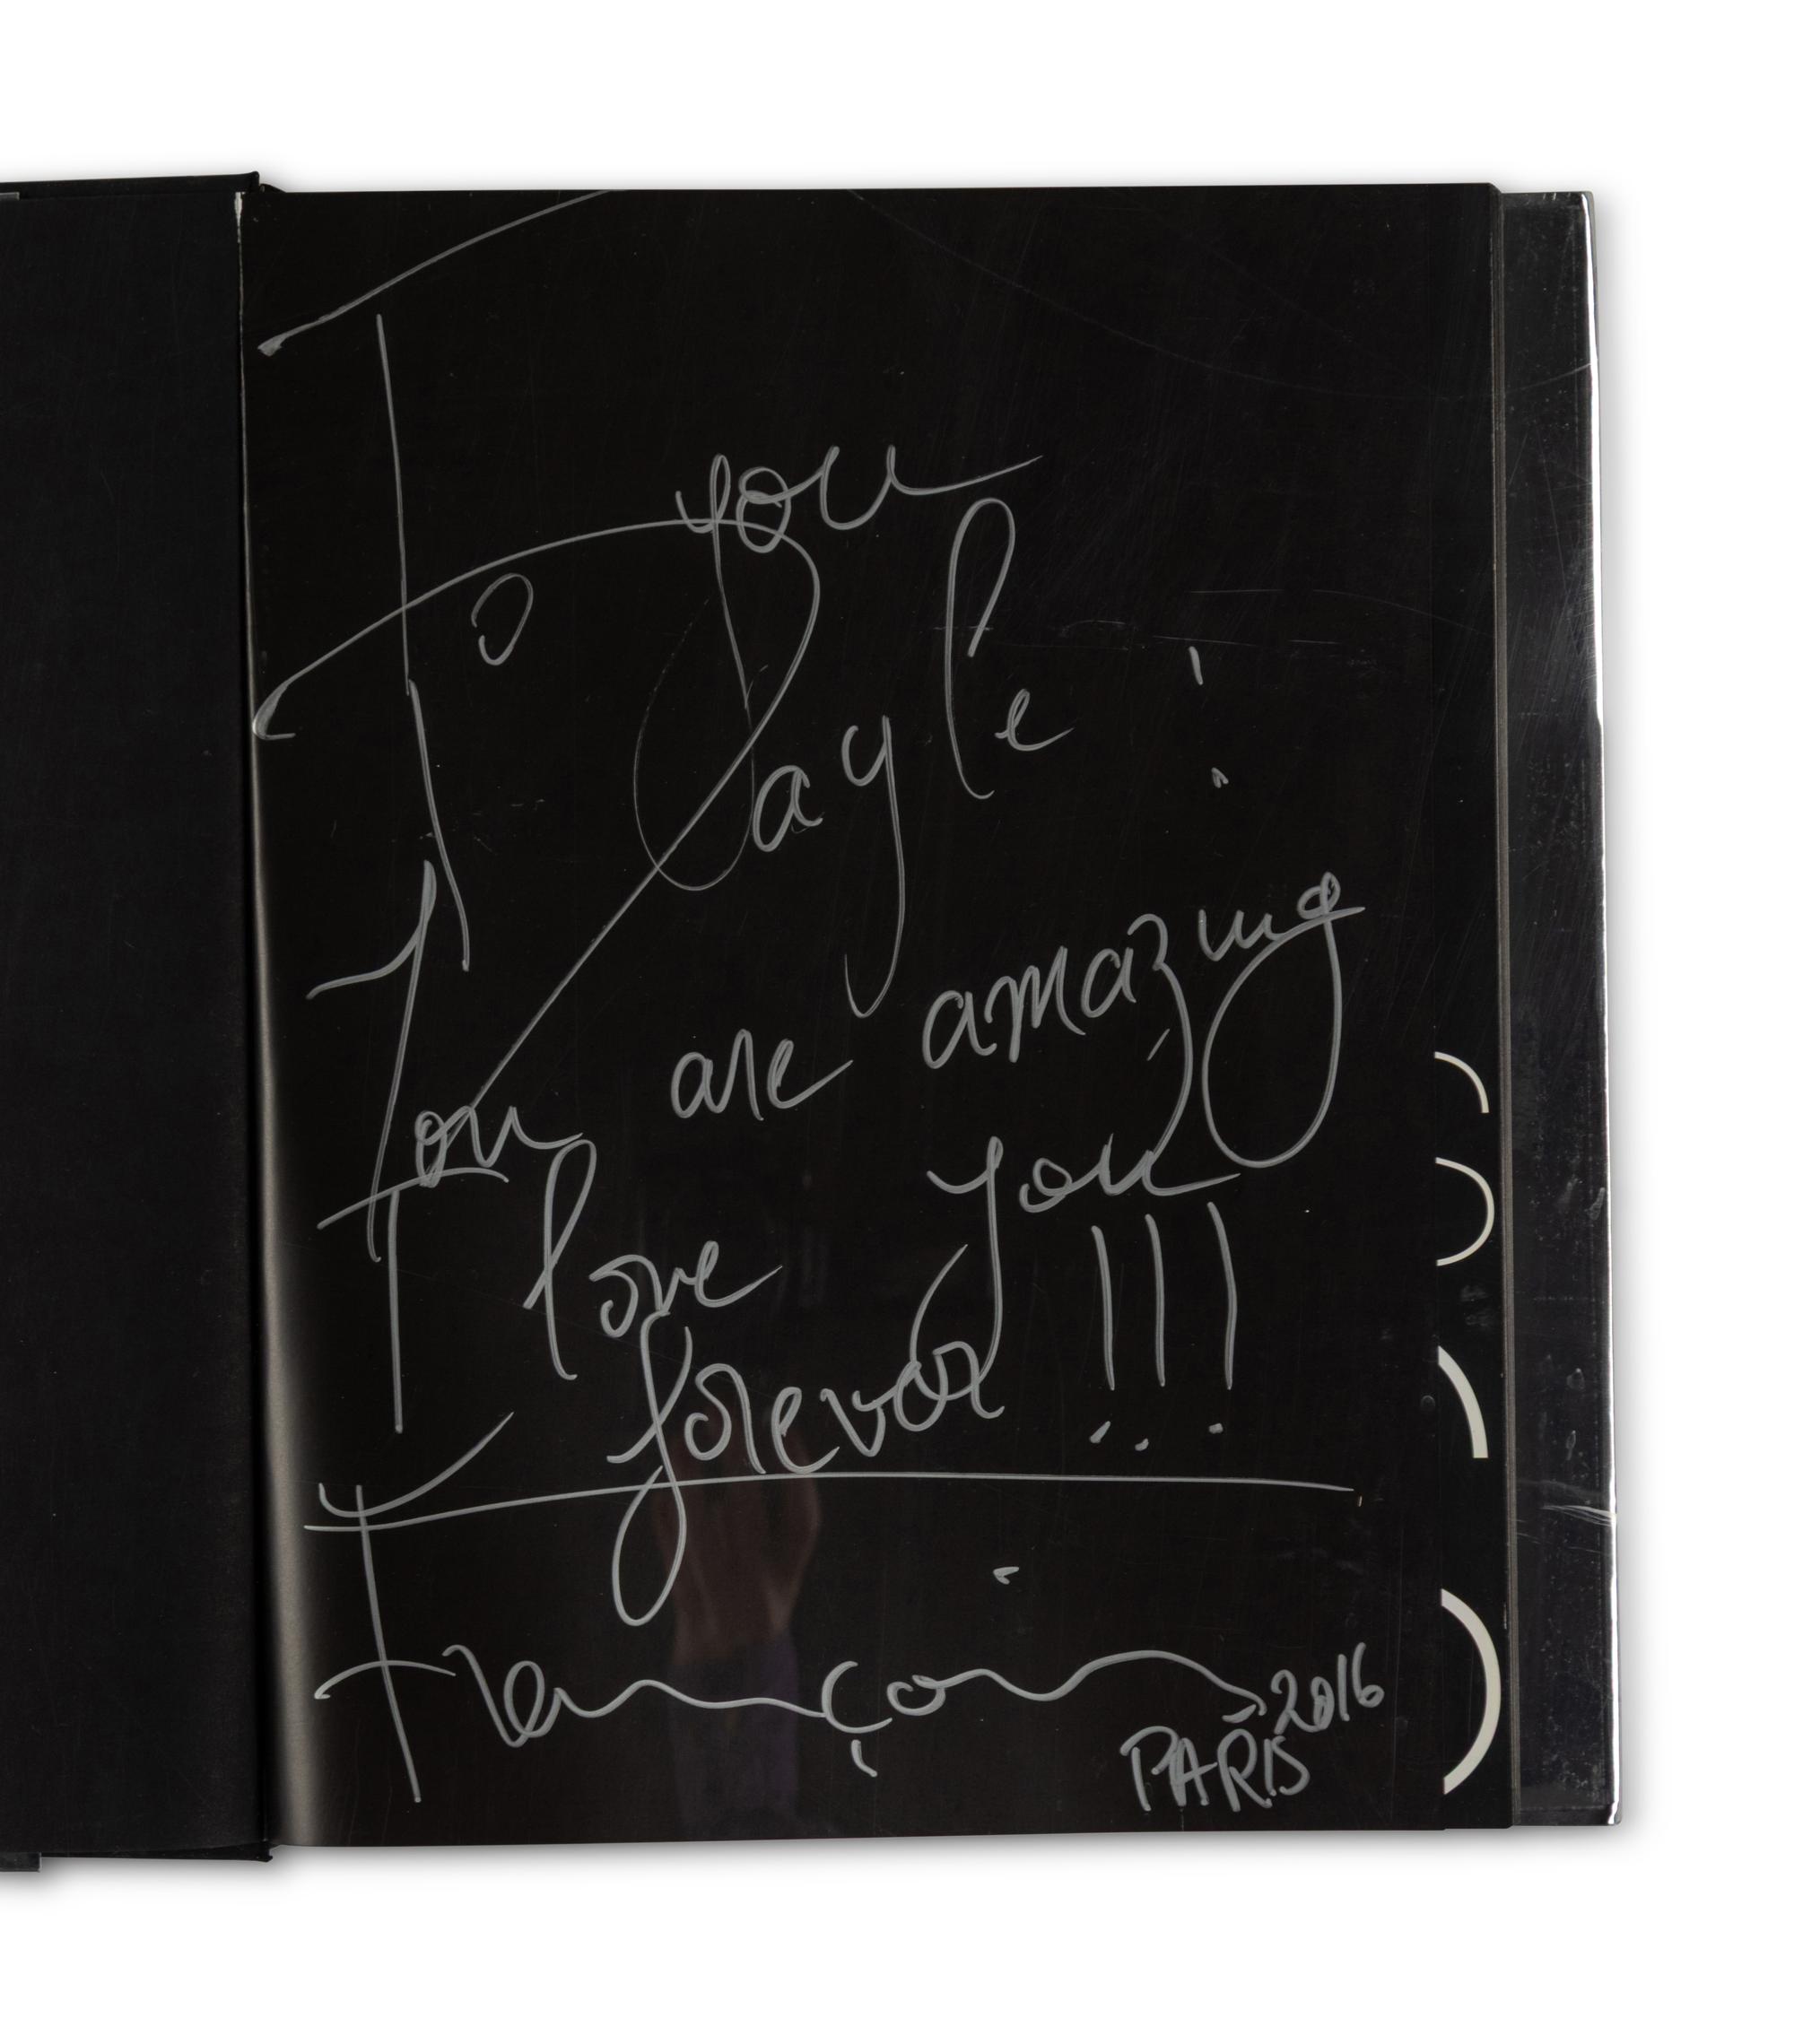 To you
Dayle !
You are amazing
I love you
forever !!!
François
2016
PARIS